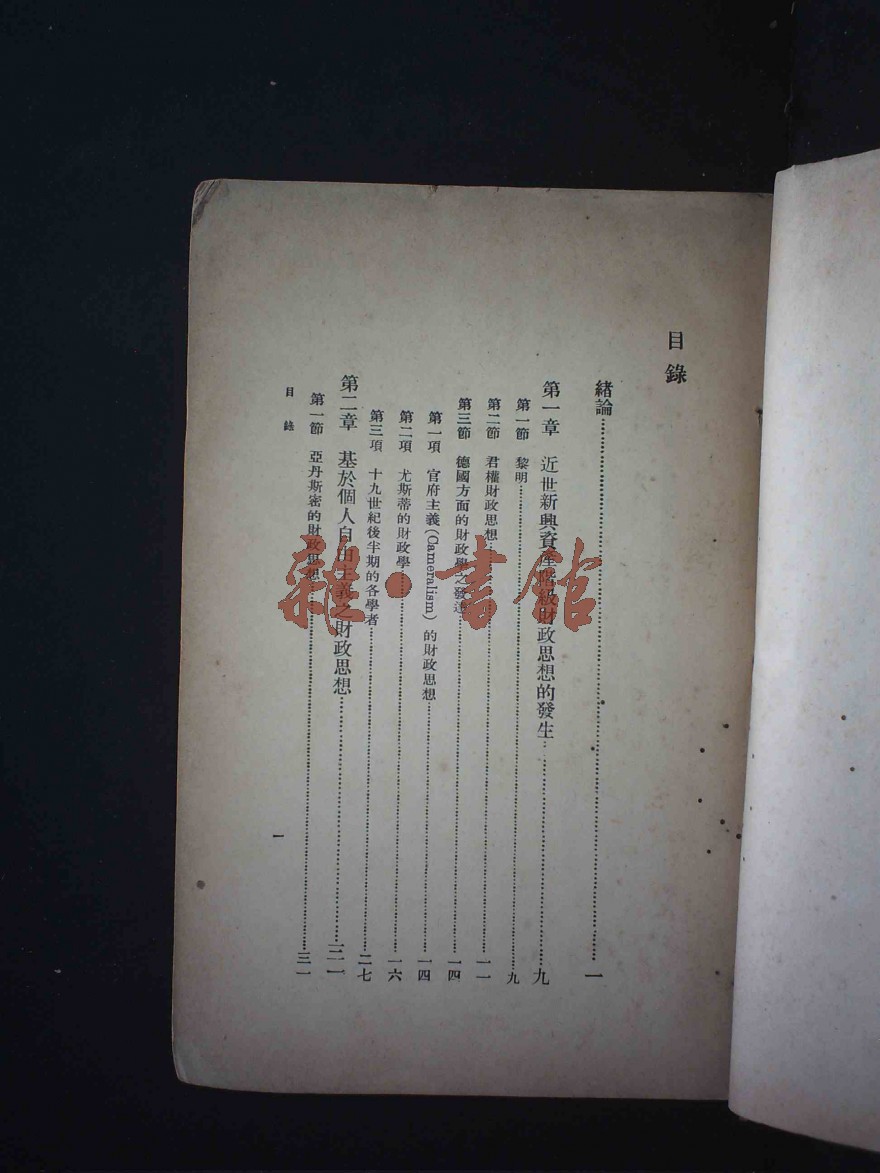 目錄
緒論……………………一
第一章 近世新興資產階級財政思想的發生……………………九
第一節 黎明……………………九
第二節 君權財政思想……………………一一
第三節 德國方面的財政學之發達……………………一四
第一項 官府主義(Cameralism)的財政思想……………………一四
第二項 尤斯蒂的財政學……………………一六
第三項 十九世紀後半期的各學者……………………二七
第二章 基於個人自由主義之財政思想……………………三一
第一節 亞丹斯密的財政思想……………………三一
目錄 一
雜·書館